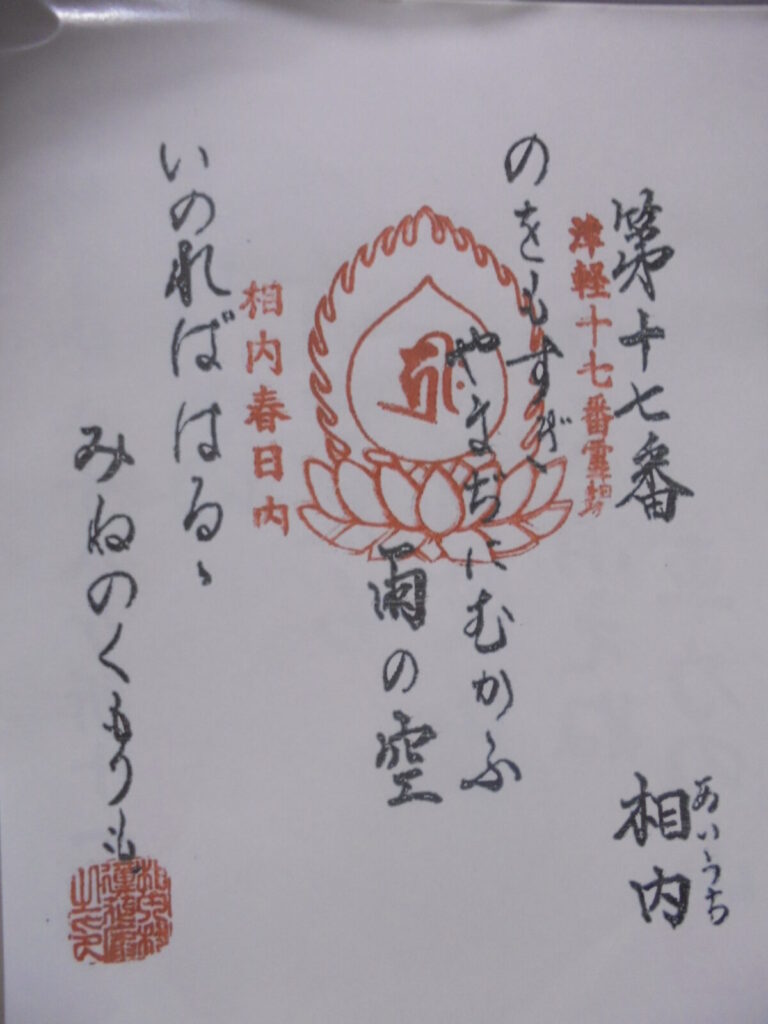 第十七番
相内
あいうち
津軽十七番霊場
のをもすぎ
やまぢにむかふ
雨の空
相内春日内
いのればはるゝ
みねのくもりも